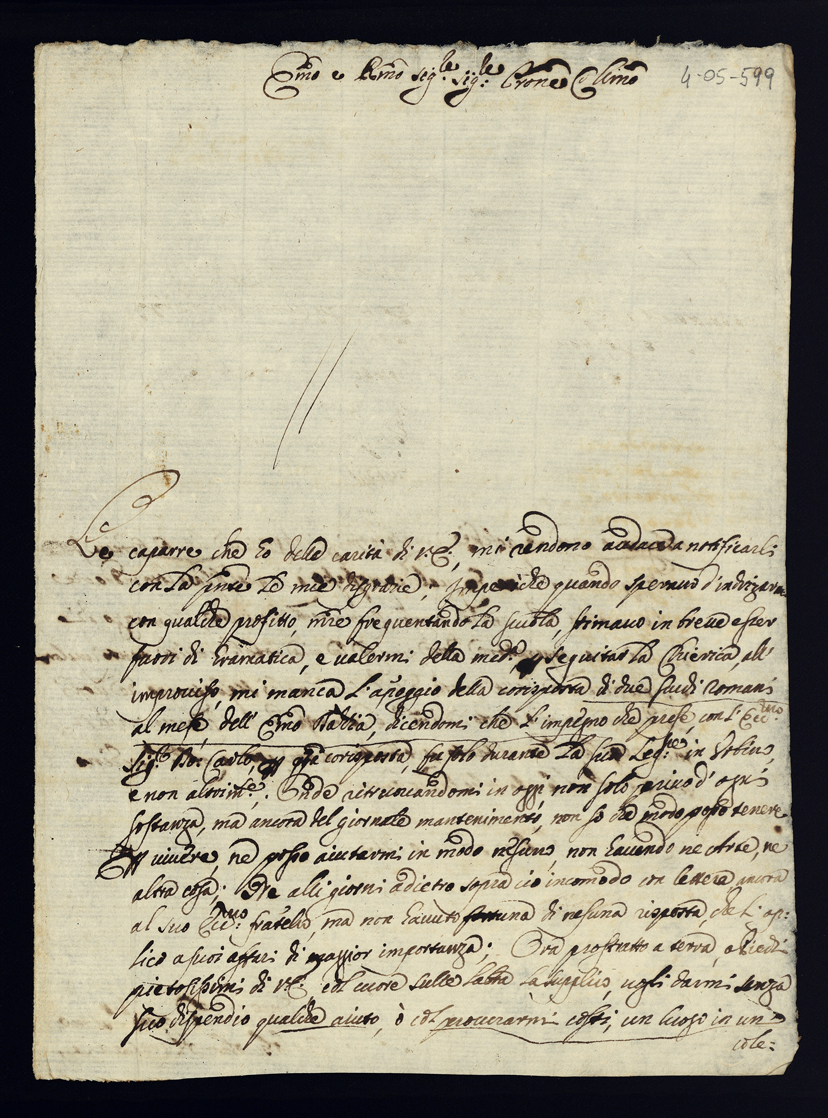 Emo e Rmo Sig:re Sig:re Prone Colmo
4-05-599
Le caparre che hò della carità di V.E:, mi rendono audace a notificarli
con la p̃nte le mie disgratie, Impeciche quando speravo d'indrizarmi
con qualche profitto, mie frequentando la scuola, stimavo in breve esser
fuori di Gramatica, e valermi della med:a p seguitar la Chierica, all'
improviso, mi manca l'apoggio della corisposta di due scudi romani
al mese, dell' Emo Albia, dicendomi che l'impegno che prese, con l'Ecc:mo
Sig:re Don Carlo, p q̃ta corisposta, fu solo durante la sua Leg:ne in Urbino,
e non altrim:te, Onde ritruvandomi in oggi non solo privo d'ogni
sostanza, ma ancora del giornale mantenimento, non so che modo posso tenere
p vivere, ne posso aiutarmi in modo nesuno, non havendo ne Arte, ne
altra cosa; Ne alli giorni adietro sopra ciò incomodo con lettere ancora
al suo Ecc:mo fratello, ma non havuto fortuna di nesuna risposta, che l'ap=
lico a suoi affari di maggior importanza; Ora prostrato a terra, a piedi
pietosissimi di V.E: col cuore sulle labra la suplico, vogli darmi senza
suo dispendio qualche aiuto, ò col procurarmi costì, un luogo in un
cole=